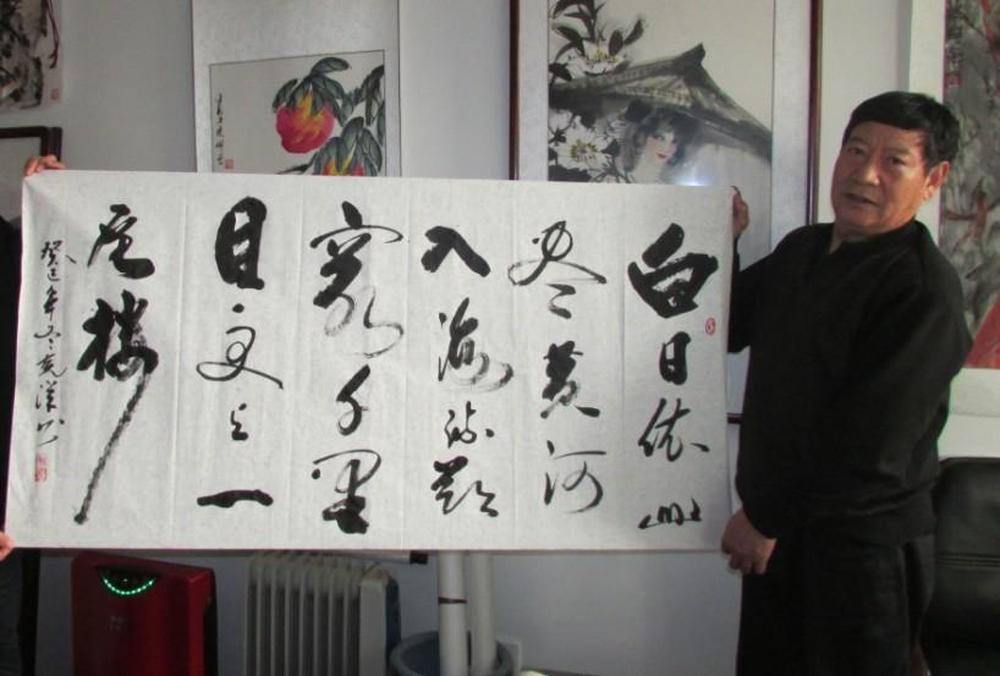 白日依山
尽黄河
入海流欲
窮千里
目更上一
层楼
癸巳年冬